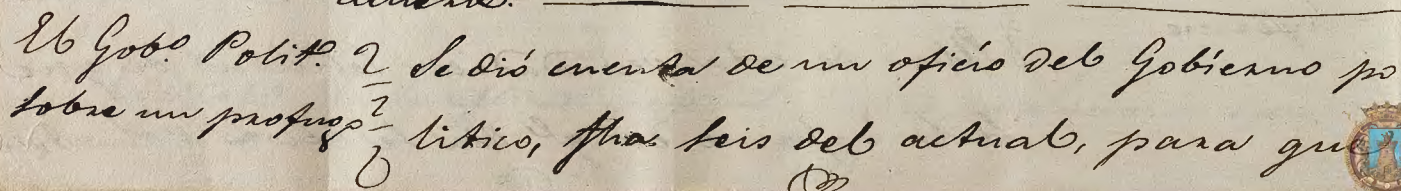 acuerdo.
El Gobº. Polit.º
sobre un profugo
Se dió cuenta de un oficio del Gobierno po
litico, fha. seis del actual, para que